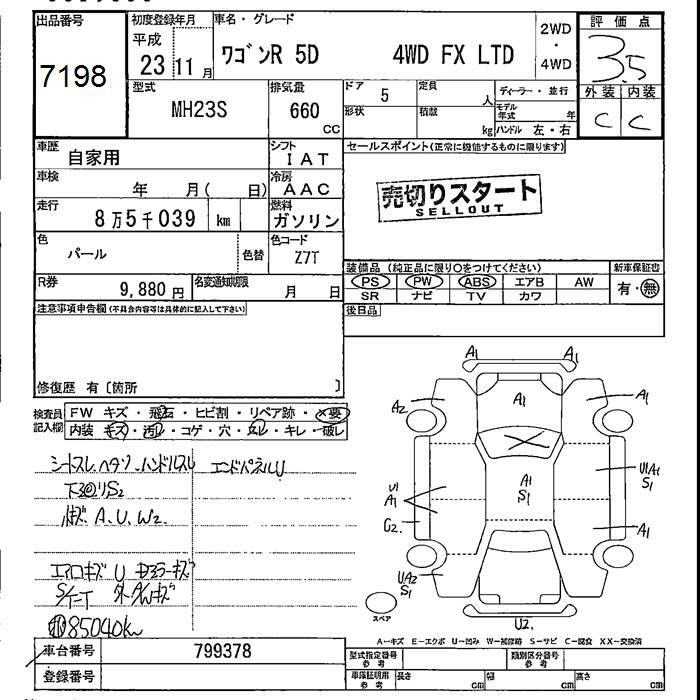 出品番号
7198
初度登録年月
平成
23 11月
車名・グレード
ワゴンR 5D 4WD FX LTD
2WD
・
4WD
評価点
3.5
外装 内装
C C
型式
MH23S
排気量
660
CC
ドア
5
形状
定員
人
積載
kg
ディーラー・並行
モデル年式 年
ハンドル 左・右
車歴
自家用
シフト
IAT
車検
年 月( 日)
冷房
AAC
走行
8万5千039 km
燃料
ガソリン
色
パール
色替
色コード
Z7T
R券
9,880円
名変通知期限
月 日
セールスポイント(正常に機能するものに限ります)
売切りスタート
SELLOUT
装備品 (純正品に限り○をつけてください)
新車保証書
PS PW ABS エアB AW
有・無
SR ナビ TV カワ
後日品
注意事項申告欄(不具合内容等は具体的に記入して下さい)
修復歴 有〔箇所 〕
検査員記入欄
FW キズ・飛石・ヒビ割・リペア跡・×要
内装・キズ・汚レ・コゲ・穴・スレ・キレ・破レ
シートスレ、ヘタリ、ハンドルスレ エンドパネルU
下回りS2
A.U.W2.
エアロキズ U
85040km
A1 A1
A2 A1 A1
U1
A1
A1
S1
U1A1
S1
C2.
A1
UA2
S1
U2.
スペア
A-キズ E-エクボ U-凹み W-補修跡 S-サビ C-腐食 XX-交換済
車台番号
799378
登録番号
型式指定番号
参考
類別区分番号
参考
車庫証明用
参考
長さ cm
幅 cm
高さ cm